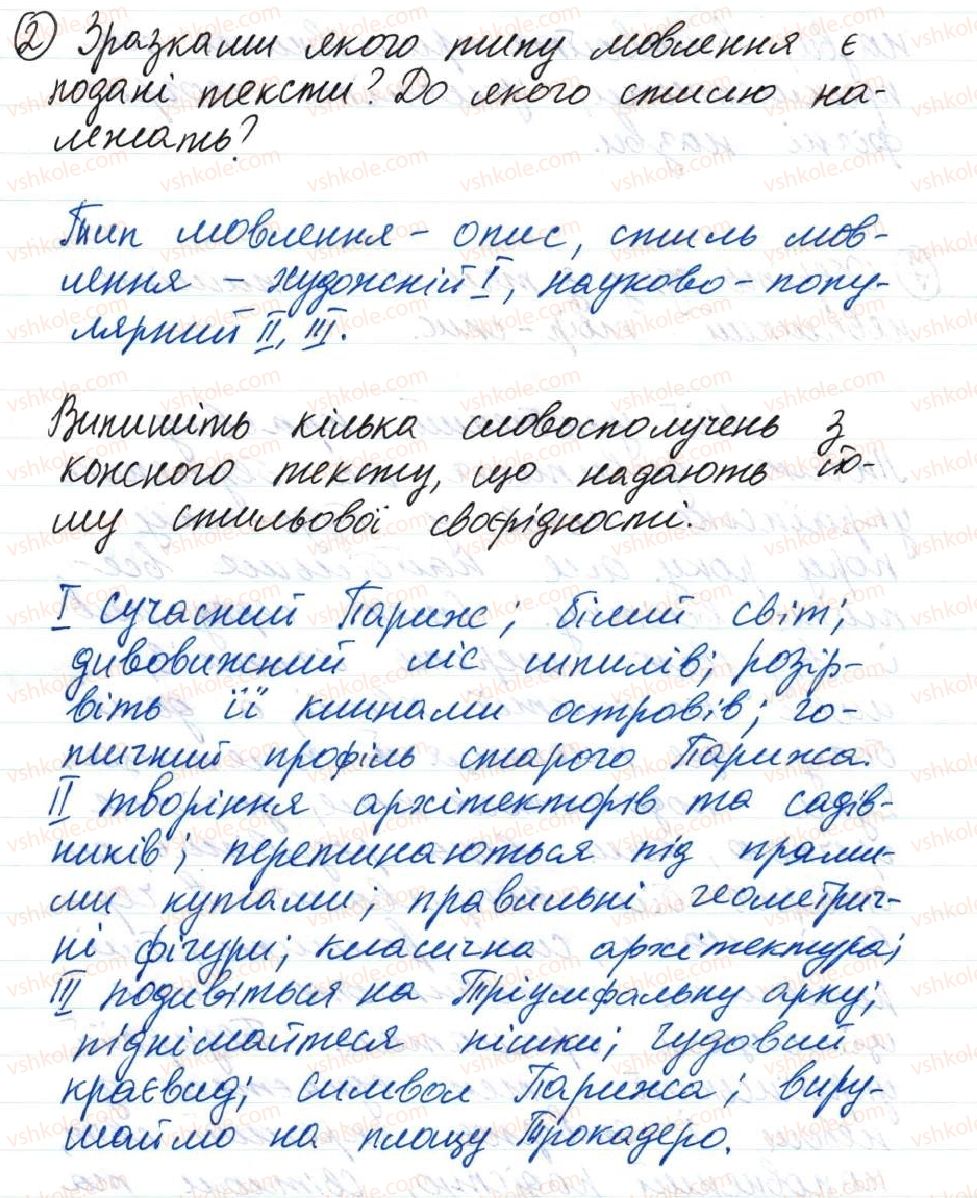 2 Зразками якого типу мовлення є
подані тексти? До якого стилю на-
лежать?
Тип мовлення - опис, стиль мов-
лення - художній I, науково-попу-
лярний II, III.
Випишіть кілька словосполучень з
кожного тексту, що надають йо-
му стильової своєрідності.
I сучасний Париж; білий світ;
дивовижний ліс шпилів; розір-
віть її клинами островів; го-
тичний профіль старого Парижа.
II творіння архітекторів та садів-
ників; перетинаються під прями-
ми кутами; правильні геометрич-
ні фігури; класична архітектура;
III подивіться на Тріумфальну арку;
піднімайтеся пішки; чудовий
краєвид; символ Парижа; виру-
шаймо на площу Трокадеро.